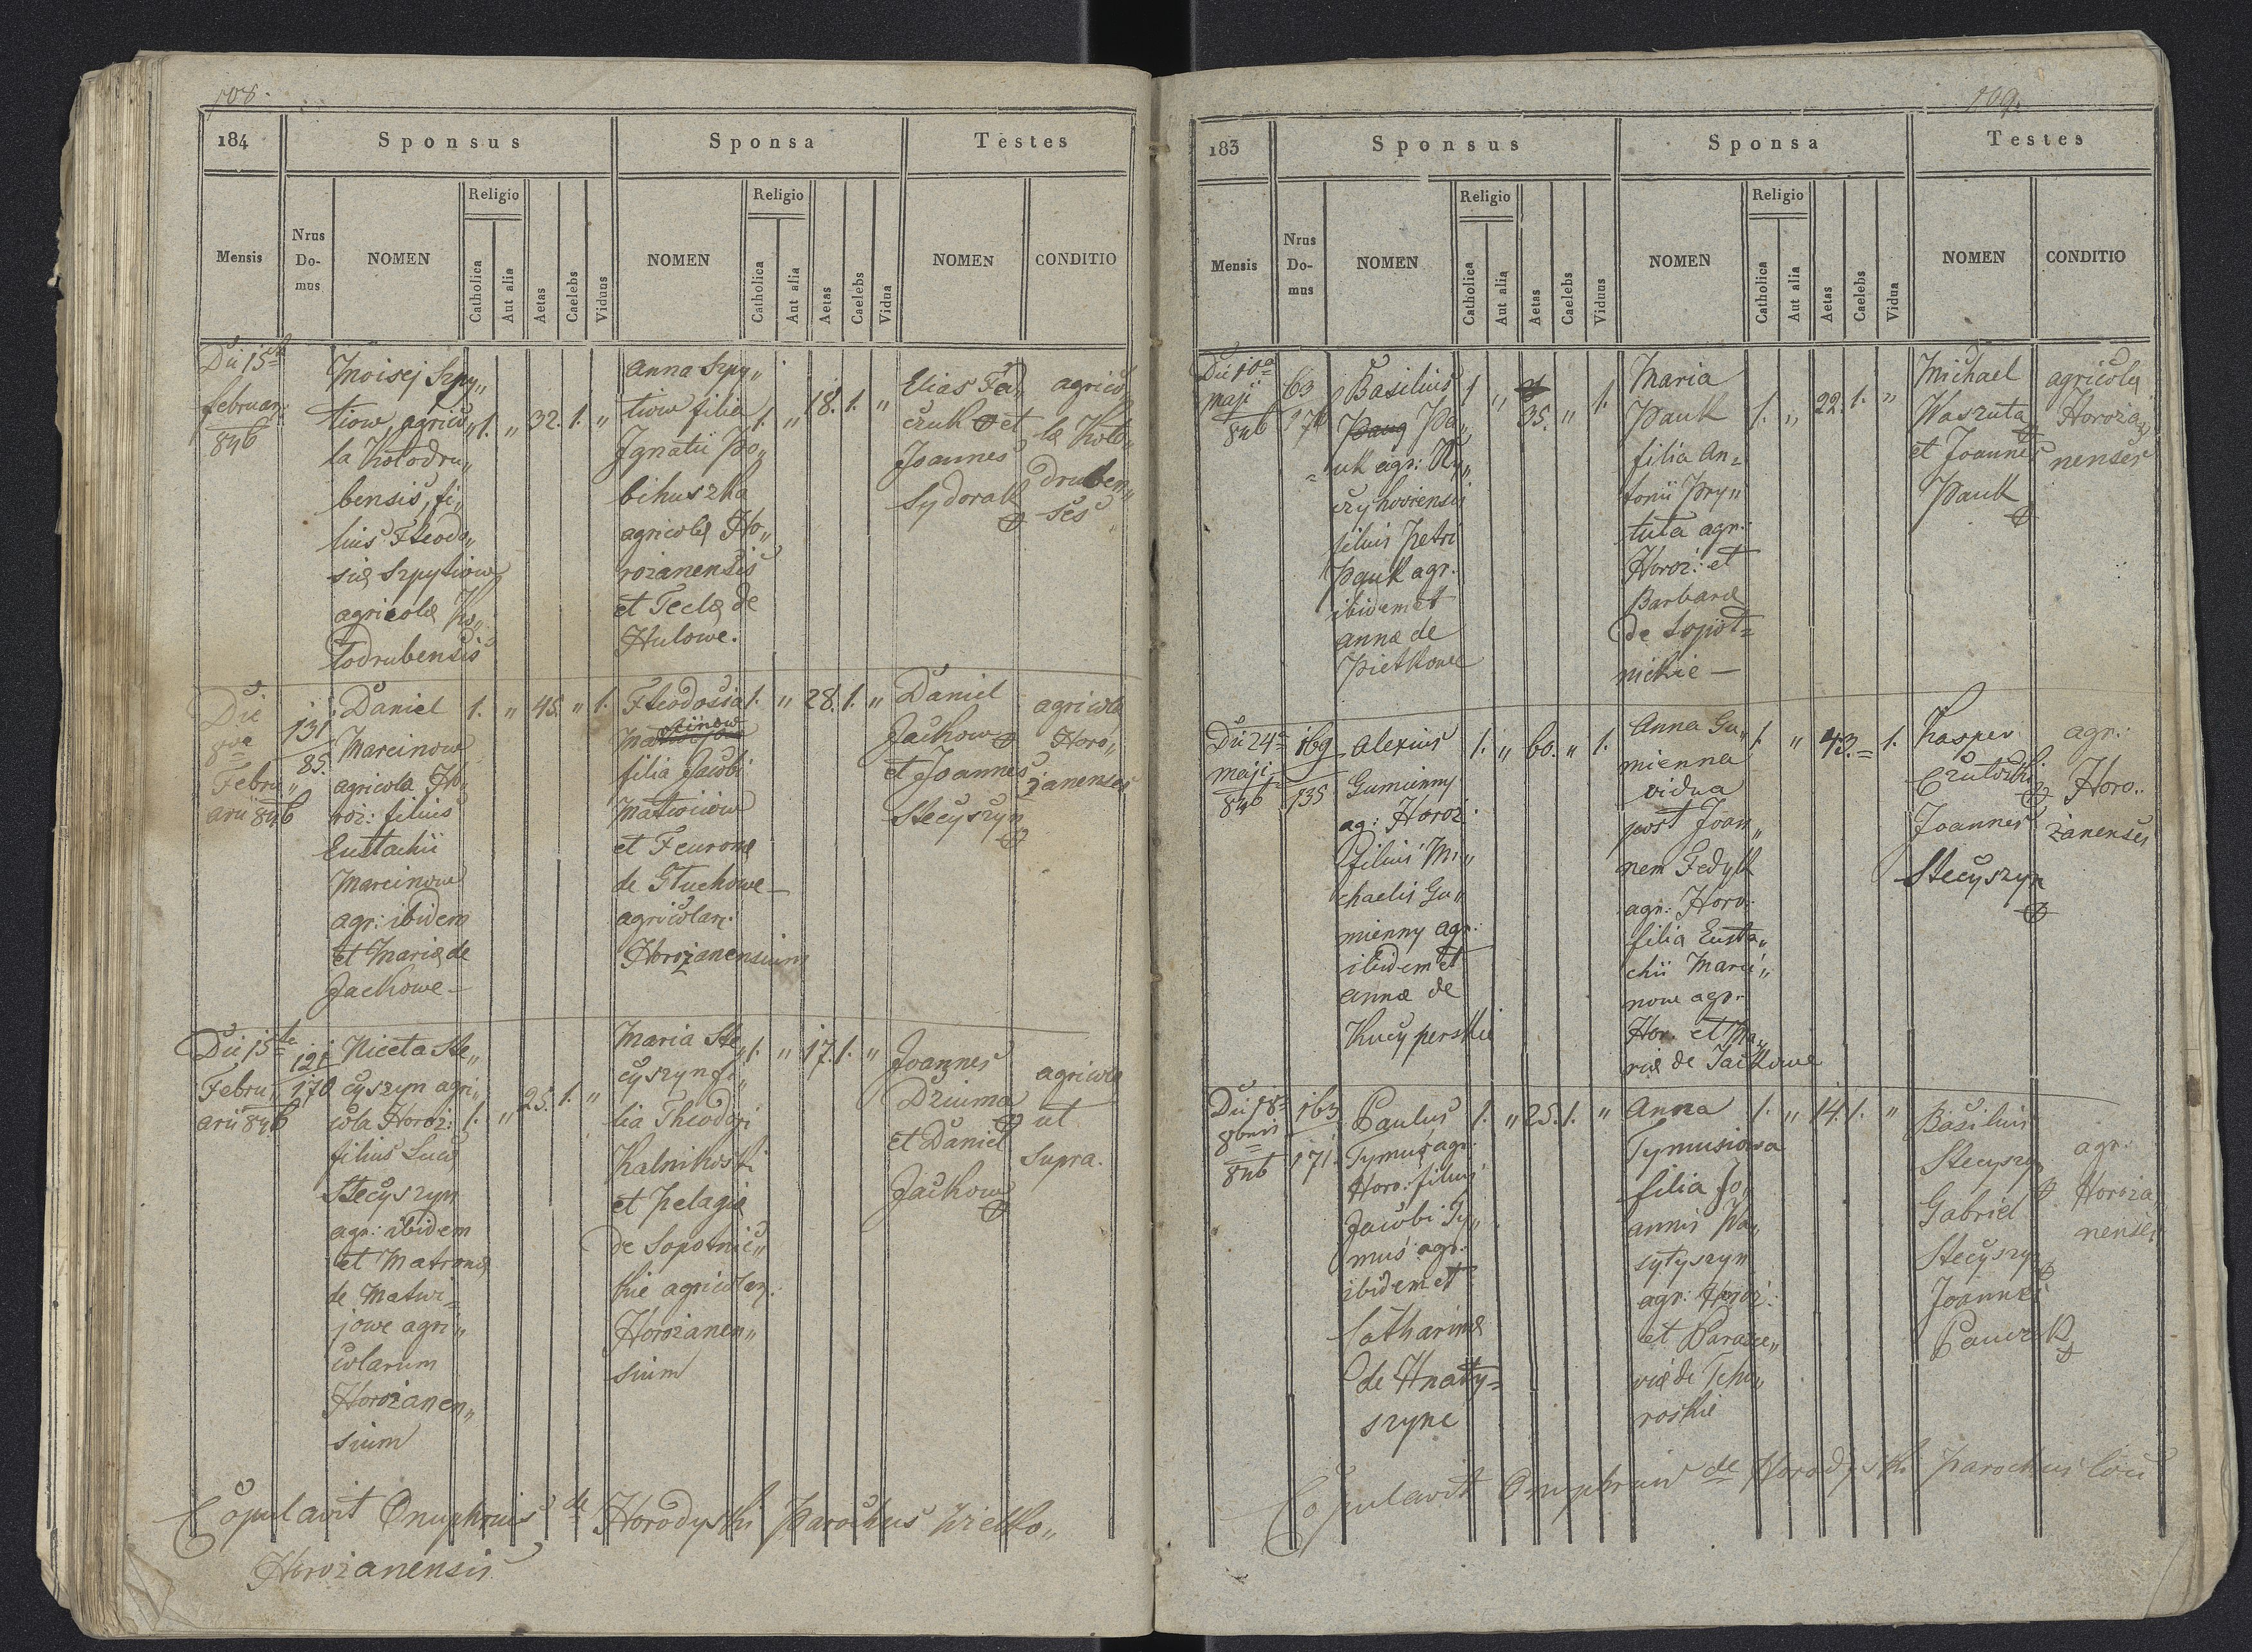 108.
184
Sponsus
Sponsa
Testes
Mensis
Nrus Do- mus
NOMEN
Religio
Catholica
Aut alia
Aetas
Caelebs
Viduus
NOMEN
Religio
Catholica
Aut alia
Aetas
Caelebs
Vidua
NOMEN
CONDITIO
Die 15a
februar:
846
Moisej Szpy„
tiow, agrico„
la Kołodru„
bensis, fi„
lius Theodo„
siæ Szpytiow
agricolæ Ko„
łodrubensis
1. „ 32. 1. „
Anna Szpy„
tiow filia
Ignatii Po„
bihuszka
agricolæ Ho„
rożanensis
et Teclæ de
Hulowe.
1. „ 18. 1. „
Elias Fe
czuk et
Joannes
Sydorak
agrico„
læ Koło„
druben„
ses
Die
8va
Febru„
arii 846
131
85.
Daniel
Marcinow
agricola Ho„
roż: filius
Eustachii
Marcinow
agr: ibidem
et Mariæ de
Jackowe —
1. „ 45. „ 1.
Theodosia
filia Jacobi
Matwiiow
et Feuronæ
de Głuchowe —
agricolar:
Horożanensium
1. „ 28. 1. „
Daniel
Jackow
et Joannes
Stecyszyn
agricolæ
Horo„
żanenses
Die 15ta
Febru„
arii 846
121
170
Niceta Ste„
cyszyn agri„
cola Horoż:
filius Lucæ
Stecyszyn
agr: ibidem
et Matronæ
de Matwi=
jowe agri„
colarum
Horożanen„
sium
1. „ 25. 1. „
Maria Ste„
cyszyn fi„
lia Theodori
Kalnikoski
et Pelagiæ
de Sopotnic„
kie agricolar:
Horożanen„
sium
1. „ 17. 1. „
Joannes
Dziuma
et Daniel
Jackow
agricolæ
ut
Supra.
Copulavit Onuphrius de Horodyski Parochus Wielko„
Horożanensis
109.
183
Sponsus
Sponsa
Testes
Mensis
Nrus Do- mus
NOMEN
Religio
Catholica
Aut alia
Aetas
Caelebs
Viduus
NOMEN
Religio
Catholica
Aut alia
Aetas
Caelebs
Vidua
NOMEN
CONDITIO
Die 10a
maji
846
63
Basilius
Pa„
uk agr:
filius Petri
Pauk agr:
ibidem et
Annæ de
Pietkowe
1 „ 35. „ 1.
Maria
Pauk
filia An=
tonii Pry„
tuła agr:
Horoż: et
Barbaræ
de Sopot=
nickie —
1. „ 22. 1. „
Michael
Waszuta
et Joannes
Pauk
agricolæ
Horoża
nenses
Die 24a
maji
846
169
135
Alexius
Gumienny
ag: Horoż:
filius Mi„
chaelis Gu„
mienny agr:
ibidem et
Annæ de
Kucyperskie
1. „ 60. „ 1.
Anna Gu„
mienna
vidua
post Joan„
nem Fedyk
agr: Horo:
filia Eusta„
chii Marci„
now agr:
Hor: et Ma„
riæ de Jackowe
1. „ 43. = 1.
Kasper
Joannes
Stecyszyn
agr:
Horo..
żanenses
Die 18a
8bris
846
163
171.
Paulus
Tymuś agr:
Horo: filius
Jacobi Ty„
muś agr:
ibidem et
Catharinæ
de Hnaty=
szyne
1. „ 25. 1. „
Anna
Tymusiowa
filia Jo„
annis Wa„
syłyszyn
agr: Horoż:
et Parasce„
viæ de
roskie
1. „ 14. 1. „
Basilius
Stecyszyn
Gabriel
Stecyszyn
Joannes
agr:
Horoża
nenses
Copulavit Onuphrius de Horodyski Parochus loci